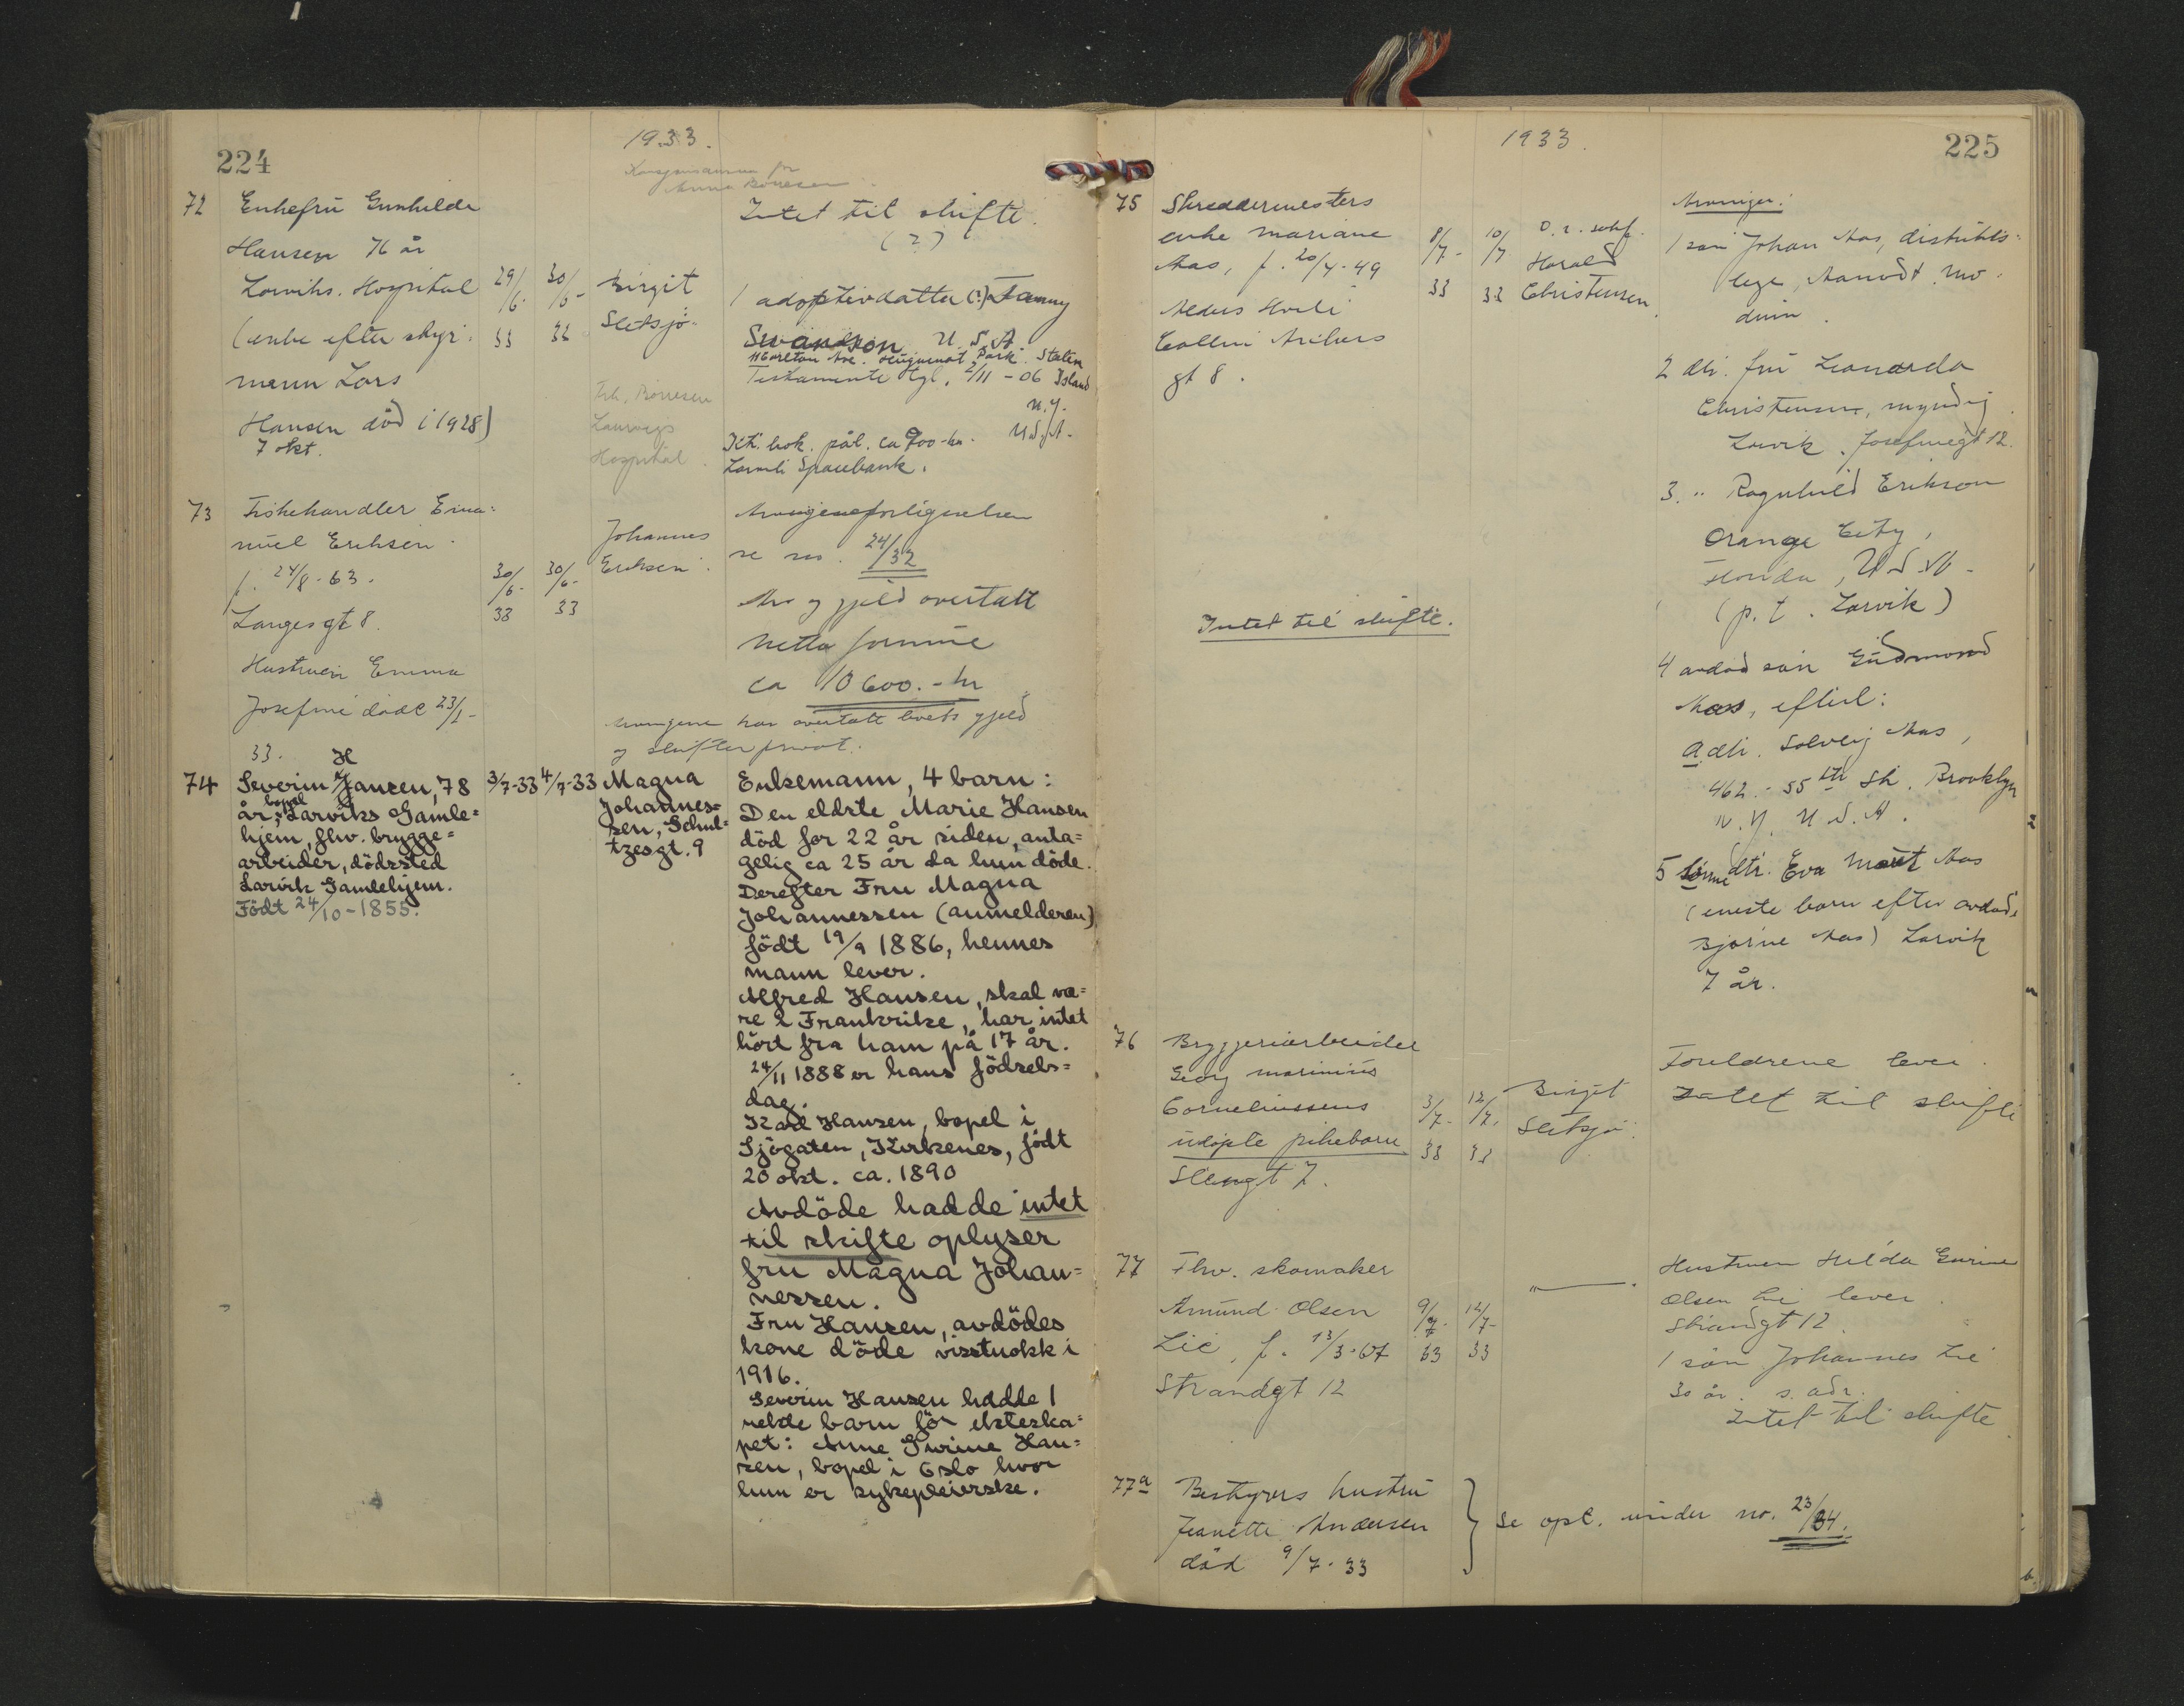 224
1933.
72 Enkefru Gunhilde
Hansen 76 år
Larviks. Hospital
(enke efter styr-
mann Lars
Hansen död i 1928)
7 okt.
29/6-33
30/6-33
Birgit
Sletsjö.
Anna Börresen
Frk. Börresen
Laurvigs
Hospital.
Intet til skifte.
(?)
1 adoptivdatter (?) Fanny
Swandson U.S.A
11 Carlton Ave. Huguenot Park. Staten
Testamente tgl. 2/11-06 Island
N.Y.
U.S.A.
bok. pål. ca 700-kr.
Sparebank.
73 Fiskehandler Ema-
nuel Eriksen.
f. 24/8-63.
Langesgt 8.
Hustruen Emma
Josefine döde 23/1-
33.
30/6-33
30/6-33
Johannes
Eriksen.
se no. 24/32
Arv og gjeld overtatt
Netto formue
ca 10600.- kr
Arvingene har overtatt boets gjeld
og skifter privat.
74 Severin H Janzen, 78
år, bopel Larviks Gamle=
hjem, fhv. brygge=
arbeider, dödssted
Larvik Gamlehjem.
Födt 24/10-1855.
3/7-33 4/7-33 Magna
Johannes=
sen, Schul=
tzesgt. 9
Enkemann, 4 barn:
Den eldste Marie Hansen
död for 22 år siden, anta=
gelig ca 25 år da hun döde.
Derefter Fru Magna
Johannessen (anmelderen)
födt 19/9 1886, hennes
mann lever.
Alfred Hansen, skal væ=
re i Frankrike, har intet
hört fra ham på 17 år.
24/11 1888 er hans födsels=
dag.
Karl Hansen, bopel i
Sjögaten, Kirkenes, födt
20 okt. ca. 1890
Avdöde hadde intet
til skifte oplyser
fru Magna Johan=
nessen.
Fru Hansen, avdödes
kone döde visstnokk i
1916.
Severin Hansen hadde 1
uekte barn för ekteska=
pet: Anne Gurine Han=
sen, bopel i Oslo hvor
hun er sykepleierske.
1933.
225
75 Skreddermesters
enke Mariane
Aas, f. 20/4-49
gt 8.
8/7-33
10/7-33
O.r. sakf.
Harald
Christensen
Intet til skifte.
Arvinger:
1 sön Johan Aas, distrikts-
lege,
2 dtr. fru Leonarda
Christensen, myndig
Larvik. Josefinegt 12.
3. " Ragnhild Erikson
Orange City,
Florida, U.S.A.
(p.t. Larvik)
4 avdöd sön Gudmund
Aas, efterl:
a dtr. Solveig Aas,
462 - 55th St. Brooklyn
N.Y. U.S.A.
5 sönne dtr. Eva Aas
(eneste barn efter avdöde
Bjarne Aas) Larvik
7 år.
76 Bryggeriarbeider
Georg Marinius
Corneliussens
udöpte pikebarn
3/7-33
12/7-33
Birgit
Sletsjö.
Foreldrene lever.
Intet til skifte
77 Fhv. skomaker
Amund Olsen
Lie, f. 13/3-67
Strandgt 12
9/7-33
12/7-33
—"—
Hustruen Hilda Gurine
Olsen Lie lever.
Strandgt 12.
1 sön Johannes Lie
30 år. s. adr.
Intet til skifte
77a Bestyrers hustru
Jeanette Andersen
död 9/7-33
Se opl. under no. 23/34.